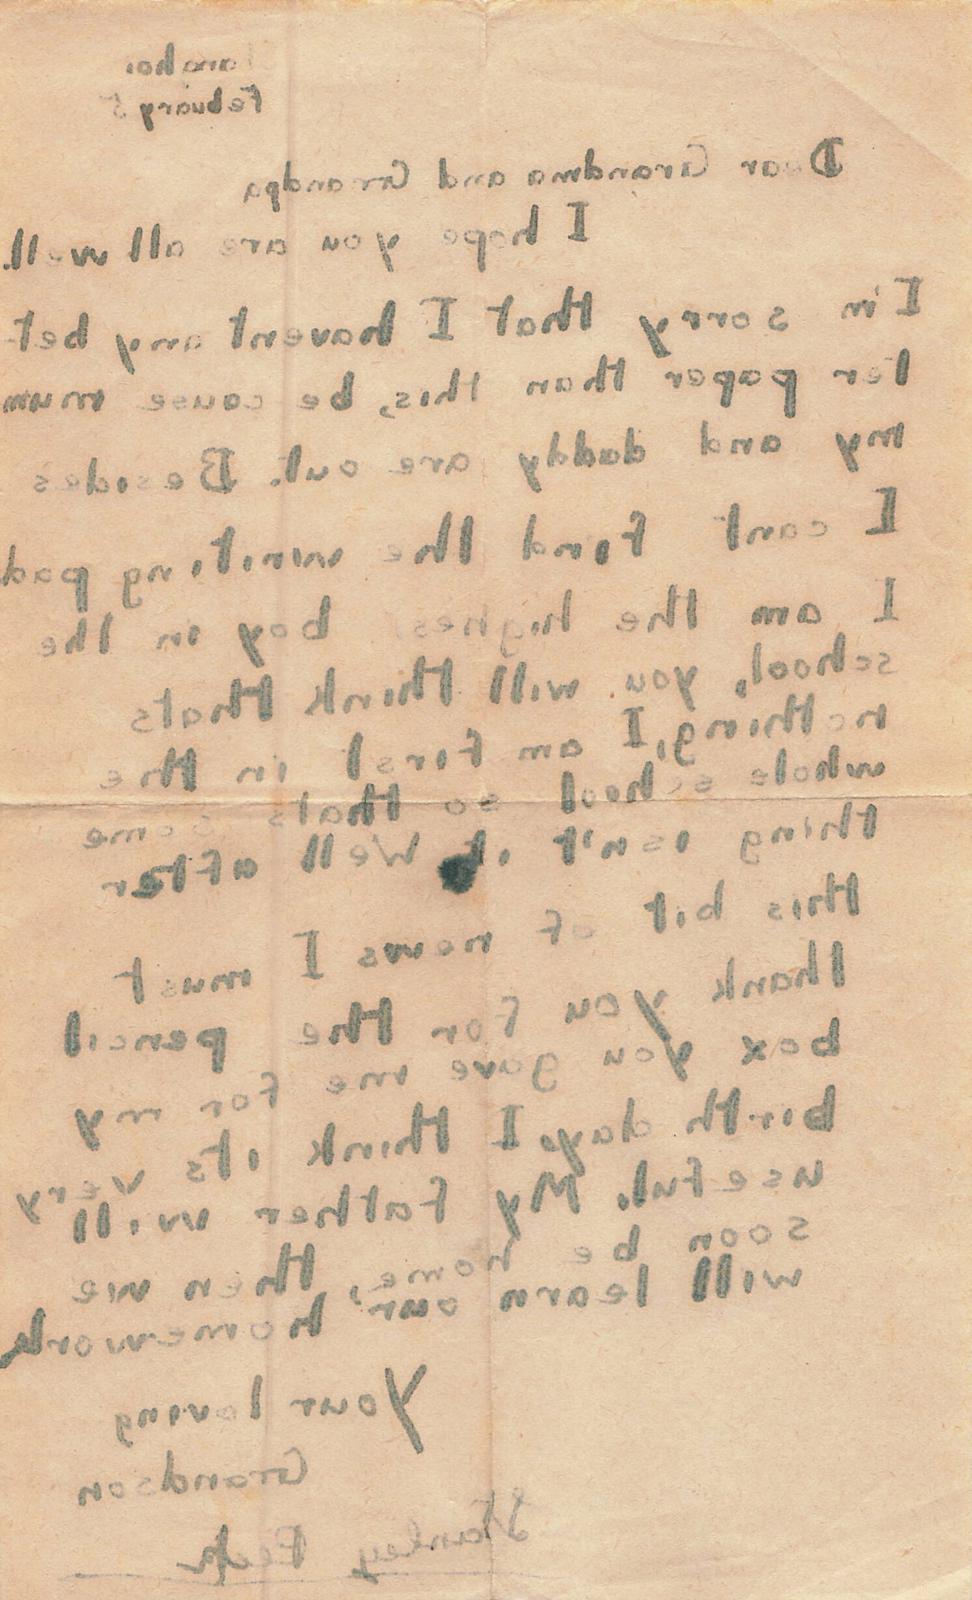 Febuary 5
Dear Grandma and Grandpa
I hope you are all well.
I'm sorry that I havent any bet-
ter paper than this, be cause mum
my and daddy are out. Besides
I cant find the writing pad
I am the highest boy in the
school, you will think thats
nothing, I am first in the
whole school so thats some
thing isn't it Well after
this bit of news I must
thank you for the pencil
box you gave me for my
birth day, I think its very
useful. My father will
soon be home, then we
will learn our homework
Your loving
Grandson
Stanley